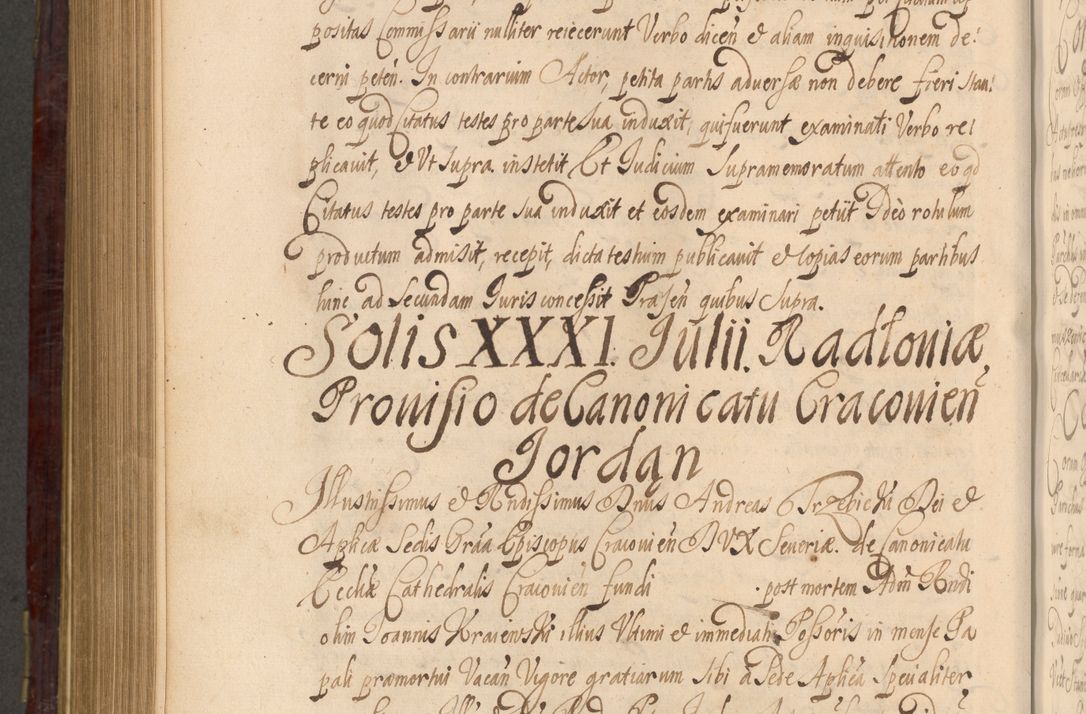 positas Commissarii nulliter reiecerunt Verbo dicen̄ & aliam inquisitionem de:
cerni peten̄. In contrarium Actor, petita partis adversæ non debere fieri stan:
te eo quod Citatus testes pro parte sua induxit, qui fuerunt examinati Verbo re:
plicauit, & Vt supra institit Et Iudicium supramemoratum attento eo qd
Citatus testes pro parte sua induxit et eosdem examinari petiit Ideo rotulum
productum admisit, recepit, dicta testium publicauit & Copias eorum partibus
hinc ad secundam Iuris concessit Præsen̄ quibus supra.
Solis XXXI. Iulii. Radłoniæ
Prouisio de Canonicatu Cracouien̄
Jordąn
Illustrissimus & Rndissimus Dnus Andreas Trzebicki Dei &
Aplicæ Sedis Gra̅a Episcopus Cracouien̄ DVX Seueriæ. de Canonicatu
Eccliæ Cathedralis Cracouien̄ fundi post mortem Adm̄ Rndi
olim Ioannis Kraiewski illius Vltimi & immediati Possōris in mense Pa
pali præmortui Vacan̄ Vigore gratiarum sibi a Sede Aplica specialiter